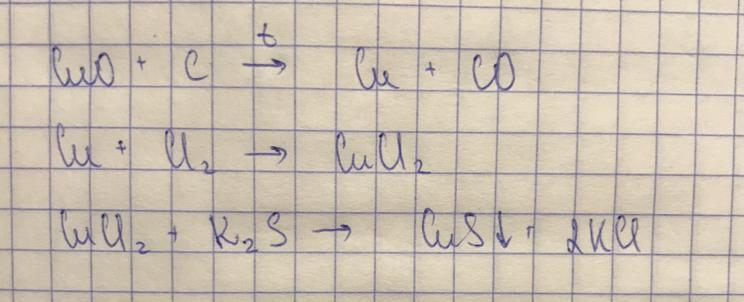 CuO + C →ᵗ Cu + CO
Cu + Cl₂ → CuCl₂
CuCl₂ + K₂S → CuS↓ + 2KCl